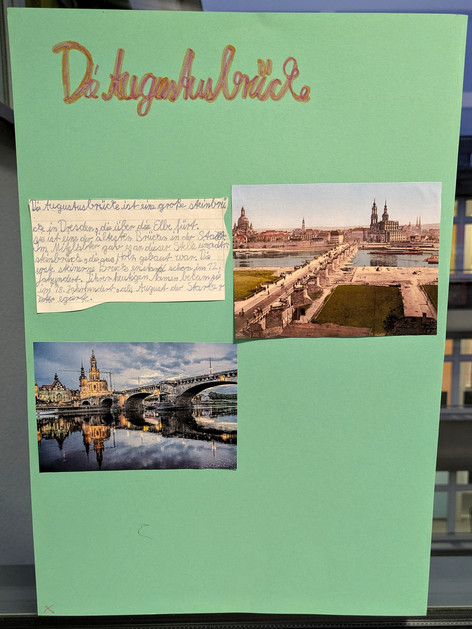 Die Augustusbrücke
Die Augustusbrücke ist eine große steinbrü
cke in Dresden, die über die Elbe fürt.
sie ist eine der ältesten Brücken in der Stadt.
Im Mittelalter gab es an dieser Stelle eine
steinbrücke, die aus Holz gebaut war. Die
erste steinerne Brücke entstand schon im 12.
Jahrhundert. Ihren heutigen Namen bekam sie
im 18. Jahrhundert, als August der Starke r